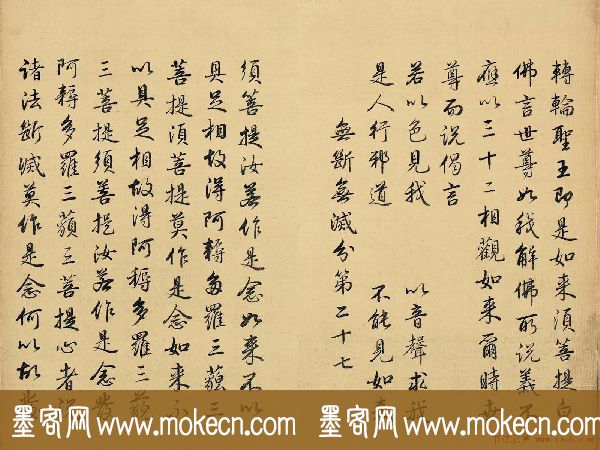 轉輪聖王即是如来須菩提白
佛言世尊如我解佛所說義不
應以三十二相觀如来爾時世
尊而說偈言
若以色見我 以音聲求我
是人行邪道 不能見如来
無斷無滅分第二十七
須菩提汝若作是念如来不以
具足相故得阿耨多羅三藐三
菩提須菩提莫作是念如来不
以具足相故得阿耨多羅三藐
三菩提須菩提汝若作是念發
阿耨多羅三藐三菩提心者說
諸法斷滅莫作是念何以故發
墨客网 墨客网 墨客网
www.mokecn.com www.mokecn.com www.mokecn.com